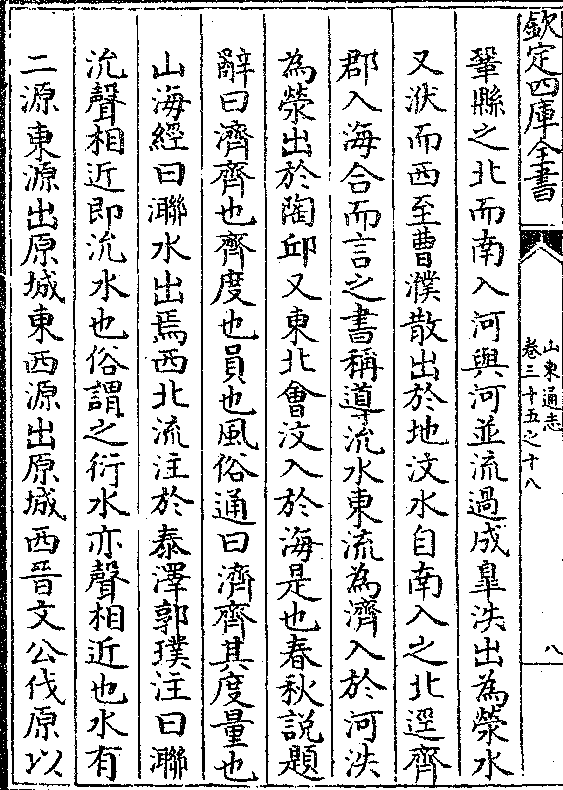 欽定四庫全書
山東通志
卷三十五之十八
八
鞏縣之北而南入河與河並流過成臯泆出為滎水
又洑而西至曹濮散出於地汶水自南入之北逕齊
郡入海合而言之書稱導沇水東流為濟入於河泆
為滎出於陶邱又東北會汶入於海是也春秋説題
辭曰濟齊也齊度也員也風俗通曰濟齊其度量也
山海經曰聯水出焉西北流注於泰澤郭璞注曰聯
沇聲相近即沇水也俗謂之衍水亦聲相近也水有
二源東源出原城東西源出原城西晉文公伐原以